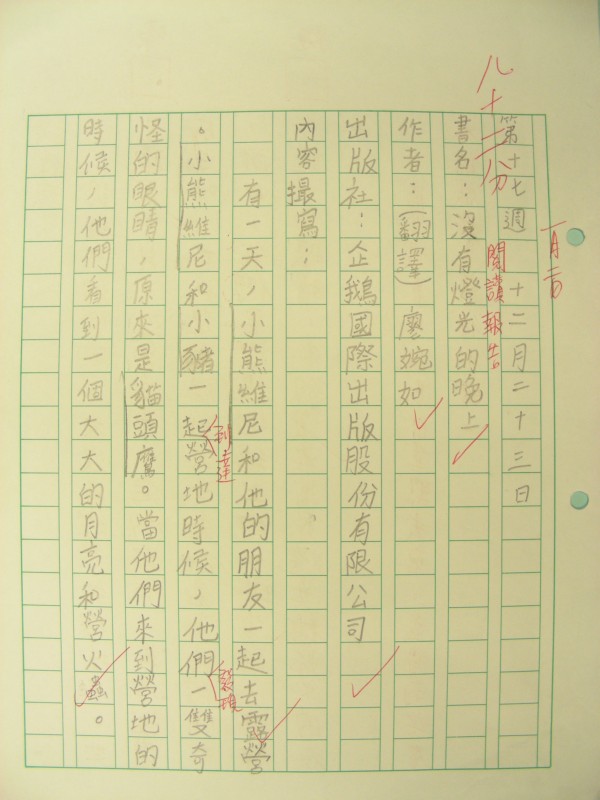 八十二份
一月二日
閱讀報告
第十七週 十二月二十三日
書名：沒有燈光的晚上
作者：（翻譯）廖婉如
出版社：企鵝國際出版股份有限公司
內容撮寫：
有一天，小熊維尼和他的朋友一起去露營
。小熊維尼和小豬一起營地時候，他們一雙奇
到達
發現
怪的眼睛，原來是貓頭鷹。當他們來到營地的
時候，他們看到一個大大的月亮和營火蟲。